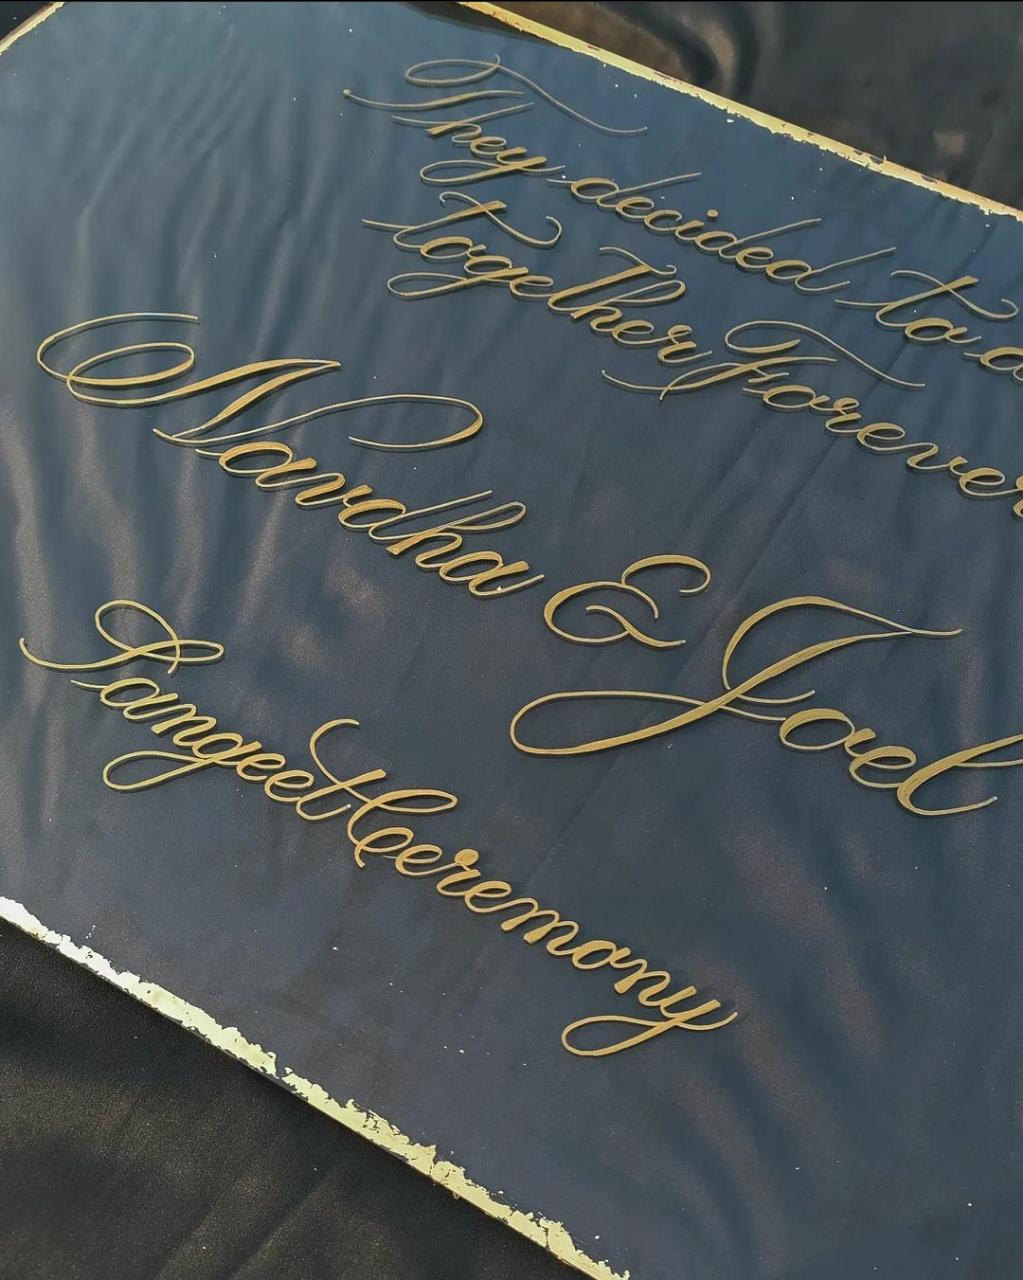 They decided to
together Forever
Navdha & Joel
Sangeet Ceremony